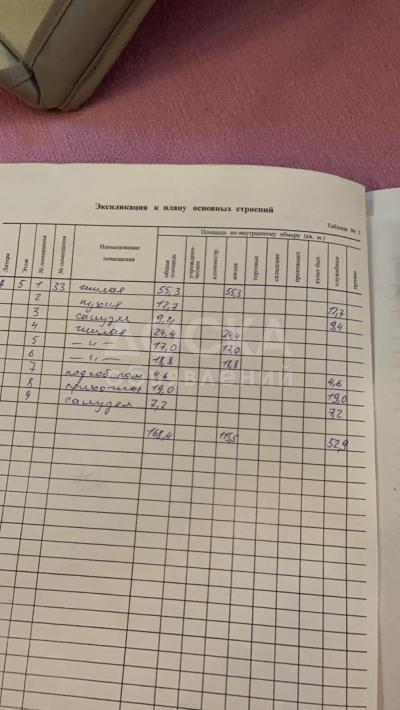 Экспликация к плану основных строений
Таблица № 1
Площадь по внутреннему обмеру (кв. м.)
Литера
Этаж
№ помещения
№ помещения
Наименование
помещения
общая
площадь
учрежден-
ческое
администр.
жилая
торговые
складские
производст.
культ-быт.
служебная
прочие
5 1 33 жилая 55,3 55,3
2 кухня 12,7 12,7
3 санузел 9,4 9,4
4 жилая 24,4 24,4
5 — " — 17,0 17,0
6 — " — 18,8 18,8
7 подсоб. пом 4,6 4,6
8 прихожая 19,0 19,0
9 санузел 7,2 7,2
168,4 115,5 52,9
ДОСКА
ОБЪЯВЛЕНИЙ